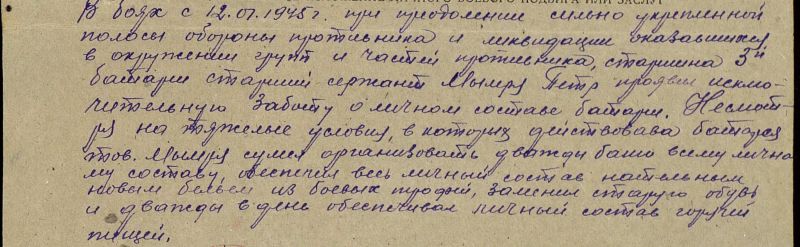 В боях с 12.01.1945 г. при преодолении сильно укрепленной
полосы обороны противника и ликвидации оказавшихся
в окружении групп и частей противника, старшина 3й
батареи старший сержант Мымря Петр проявил исклю-
чительную заботу о личном составе батареи. Несмот-
ря на тяжелые условия, в которых действовала батарея
тов. Мымря сумел организовать дважды баню всему лично-
му составу, обеспечил весь личный состав нательным
новым бельем из боевых трофей, заменил старую обувь
и дважды в день обеспечивал личный состав горячей
пищей.